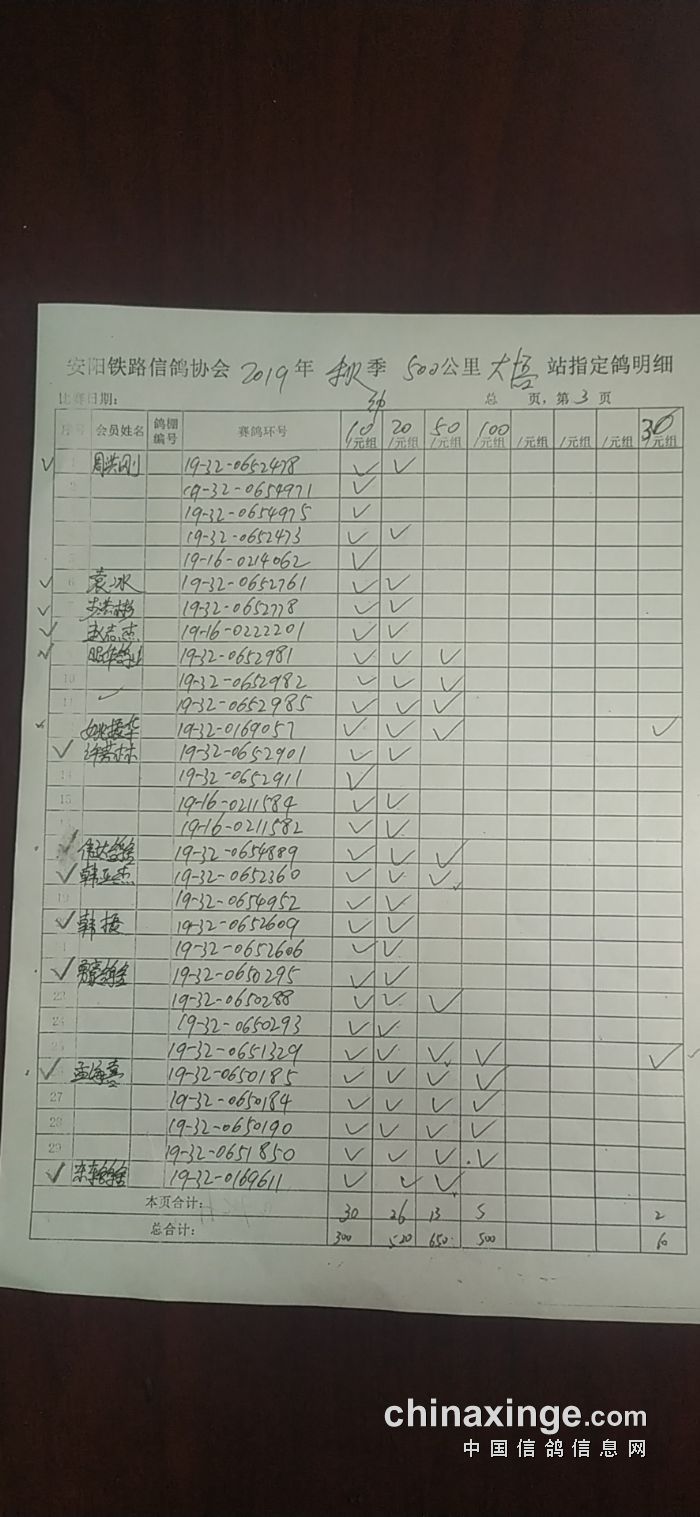 安阳铁路信鸽协会 2019 年 秋 季 500 公里 大悟 站指定鸽明细
比赛日期: 总 页, 第 3 页
序号 会员姓名 鸽棚编号 赛鸽环号 10/元组 20/元组 50/元组 100/元组 /元组 /元组 /元组 30/元组
周洪刚 19-32-0652478 ✓ ✓
2 19-32-0654971 ✓
19-32-0654975 ✓
19-32-0652473 ✓ ✓
5 19-16-0214062 ✓
6 袁冰 19-32-0652761 ✓ ✓
19-32-0652778 ✓ ✓
赵志杰 19-16-0222201 ✓ ✓
19-32-0652981 ✓ ✓ ✓
10 19-32-0652982 ✓ ✓ ✓
11 19-32-0652985 ✓ ✓ ✓
姚援华 19-32-0169057 ✓ ✓ ✓ ✓
19-32-0652901 ✓ ✓
14 19-32-0652911 ✓
15 19-16-0211584 ✓ ✓
19-16-0211582 ✓ ✓
伟达鸽舍 19-32-0654889 ✓ ✓ ✓
韩亚杰 19-32-0652360 ✓ ✓ ✓
19 19-32-0654952 ✓ ✓
韩振 19-32-0652609 ✓ ✓
19-32-0652606 ✓ ✓
19-32-0650295 ✓ ✓
23 19-32-0650288 ✓ ✓ ✓
24 19-32-0650293 ✓ ✓
25 19-32-0651329 ✓ ✓ ✓ ✓ ✓
孟海喜 19-32-0650185 ✓ ✓ ✓ ✓
27 19-32-0650184 ✓ ✓ ✓ ✓
28 19-32-0650190 ✓ ✓ ✓ ✓
29 19-32-0651850 ✓ ✓ ✓ ✓
19-32-0169611 ✓ ✓ ✓
本页合计: 30 26 13 5 2
总合计: 300 520 650 500 60
chinaxinge.com
中国信鸽信息网